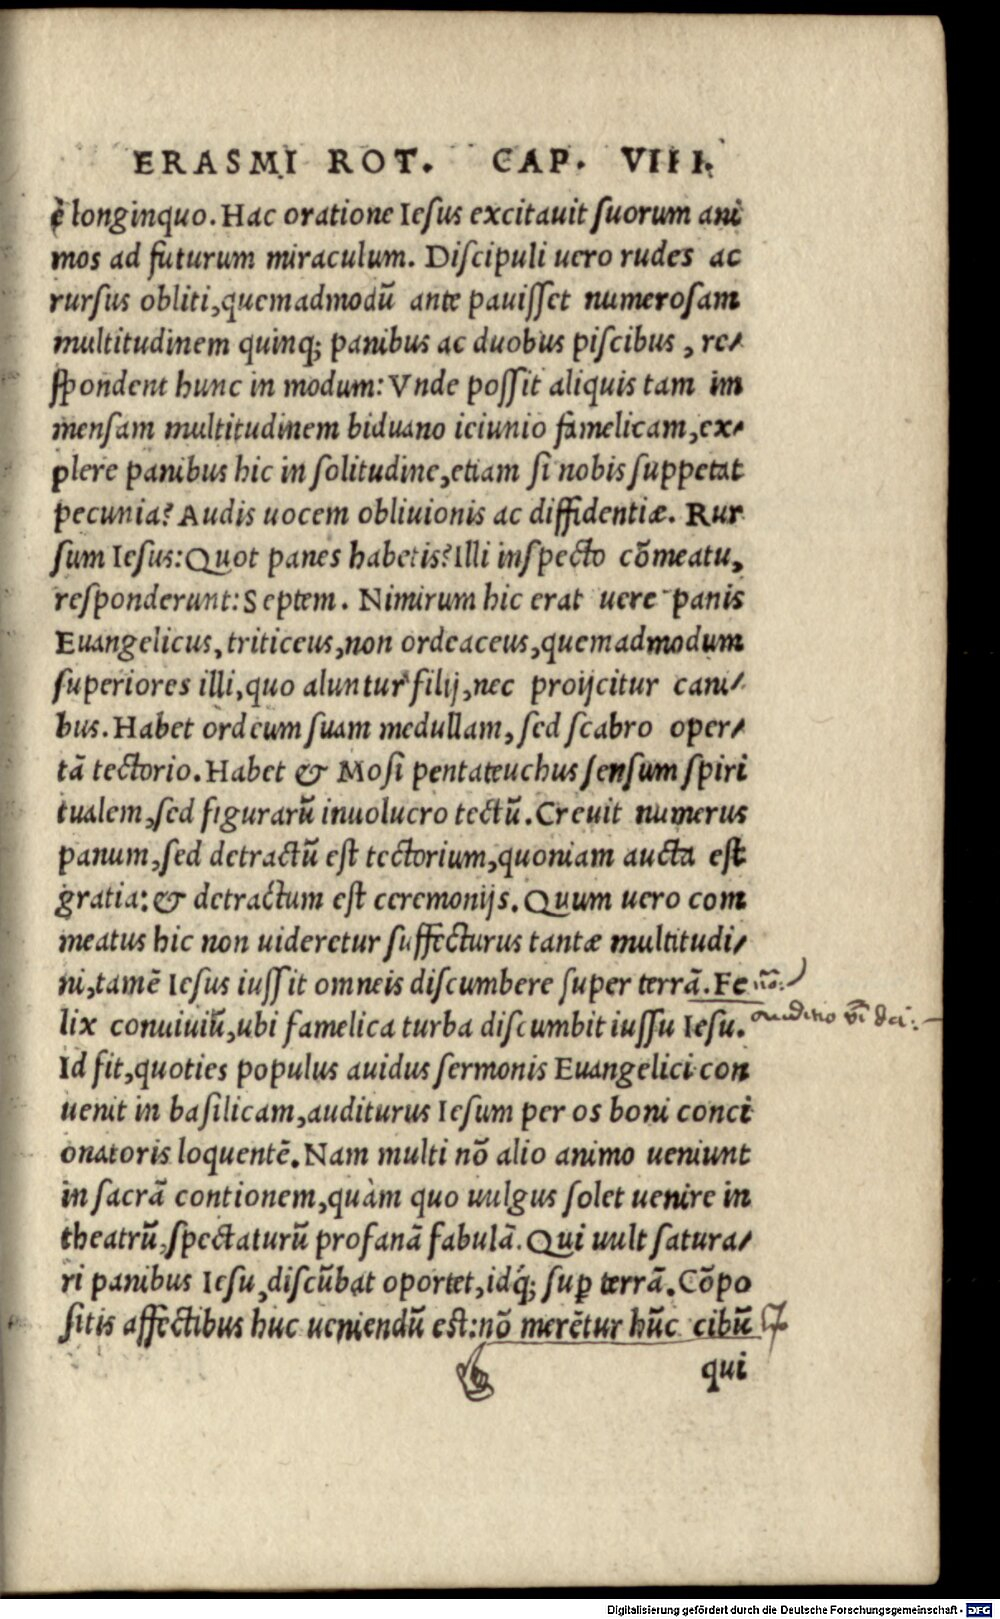 ERASMI ROT. CAP. VIII.
è longinquo. Hac oratione Iesus excitauit suorum ani
mos ad futurum miraculum. Discipuli uero rudes ac
rursus obliti, quemadmodū ante pauisset numerosam
multitudinem quinq; panibus ac duobus piscibus, re-
spondent hunc in modum: Vnde possit aliquis tam im
mensam multitudinem biduano ieiunio famelicam, ex-
plere panibus hic in solitudine, etiam si nobis suppetat
pecunia? Audis uocem obliuionis ac diffidentiæ. Rur
sum Iesus: Quot panes habetis? Illi inspecto cōmeatu,
responderunt: Septem. Nimirum hic erat uere panis
Euangelicus, triticeus, non ordeaceus, quemadmodum
superiores illi, quo aluntur filij, nec proijcitur cani-
bus. Habet ordeum suam medullam, sed scabro oper-
tā tectorio. Habet & Mosi pentateuchus sensum spiri
tualem, sed figurarū inuolucro tectū. Creuit numerus
panum, sed detractū est tectorium, quoniam aucta est
gratia: & detractum est ceremonijs. Quum uero com
meatus hic non uideretur suffecturus tantæ multitudi-
ni, tamē Iesus iussit omneis discumbere super terrā. Fe
lix conuiuiū, ubi famelica turba discumbit iussu Iesu.
Id fit, quoties populus auidus sermonis Euangelici con
uenit in basilicam, auditurus Iesum per os boni conci
onatoris loquentē. Nam multi nō alio animo ueniunt
in sacrā contionem, quàm quo uulgus solet uenire in
theatrū, spectaturū profanā fabulā. Qui uult satura-
ri panibus Iesu, discūbat oportet, idq́; sup terrā. Cōpo
sitis affectibus huc ueniendū est: nō merētur hūc cibū
qui
Digitalisierung gefördert durch die Deutsche Forschungsgemeinschaft - DFG